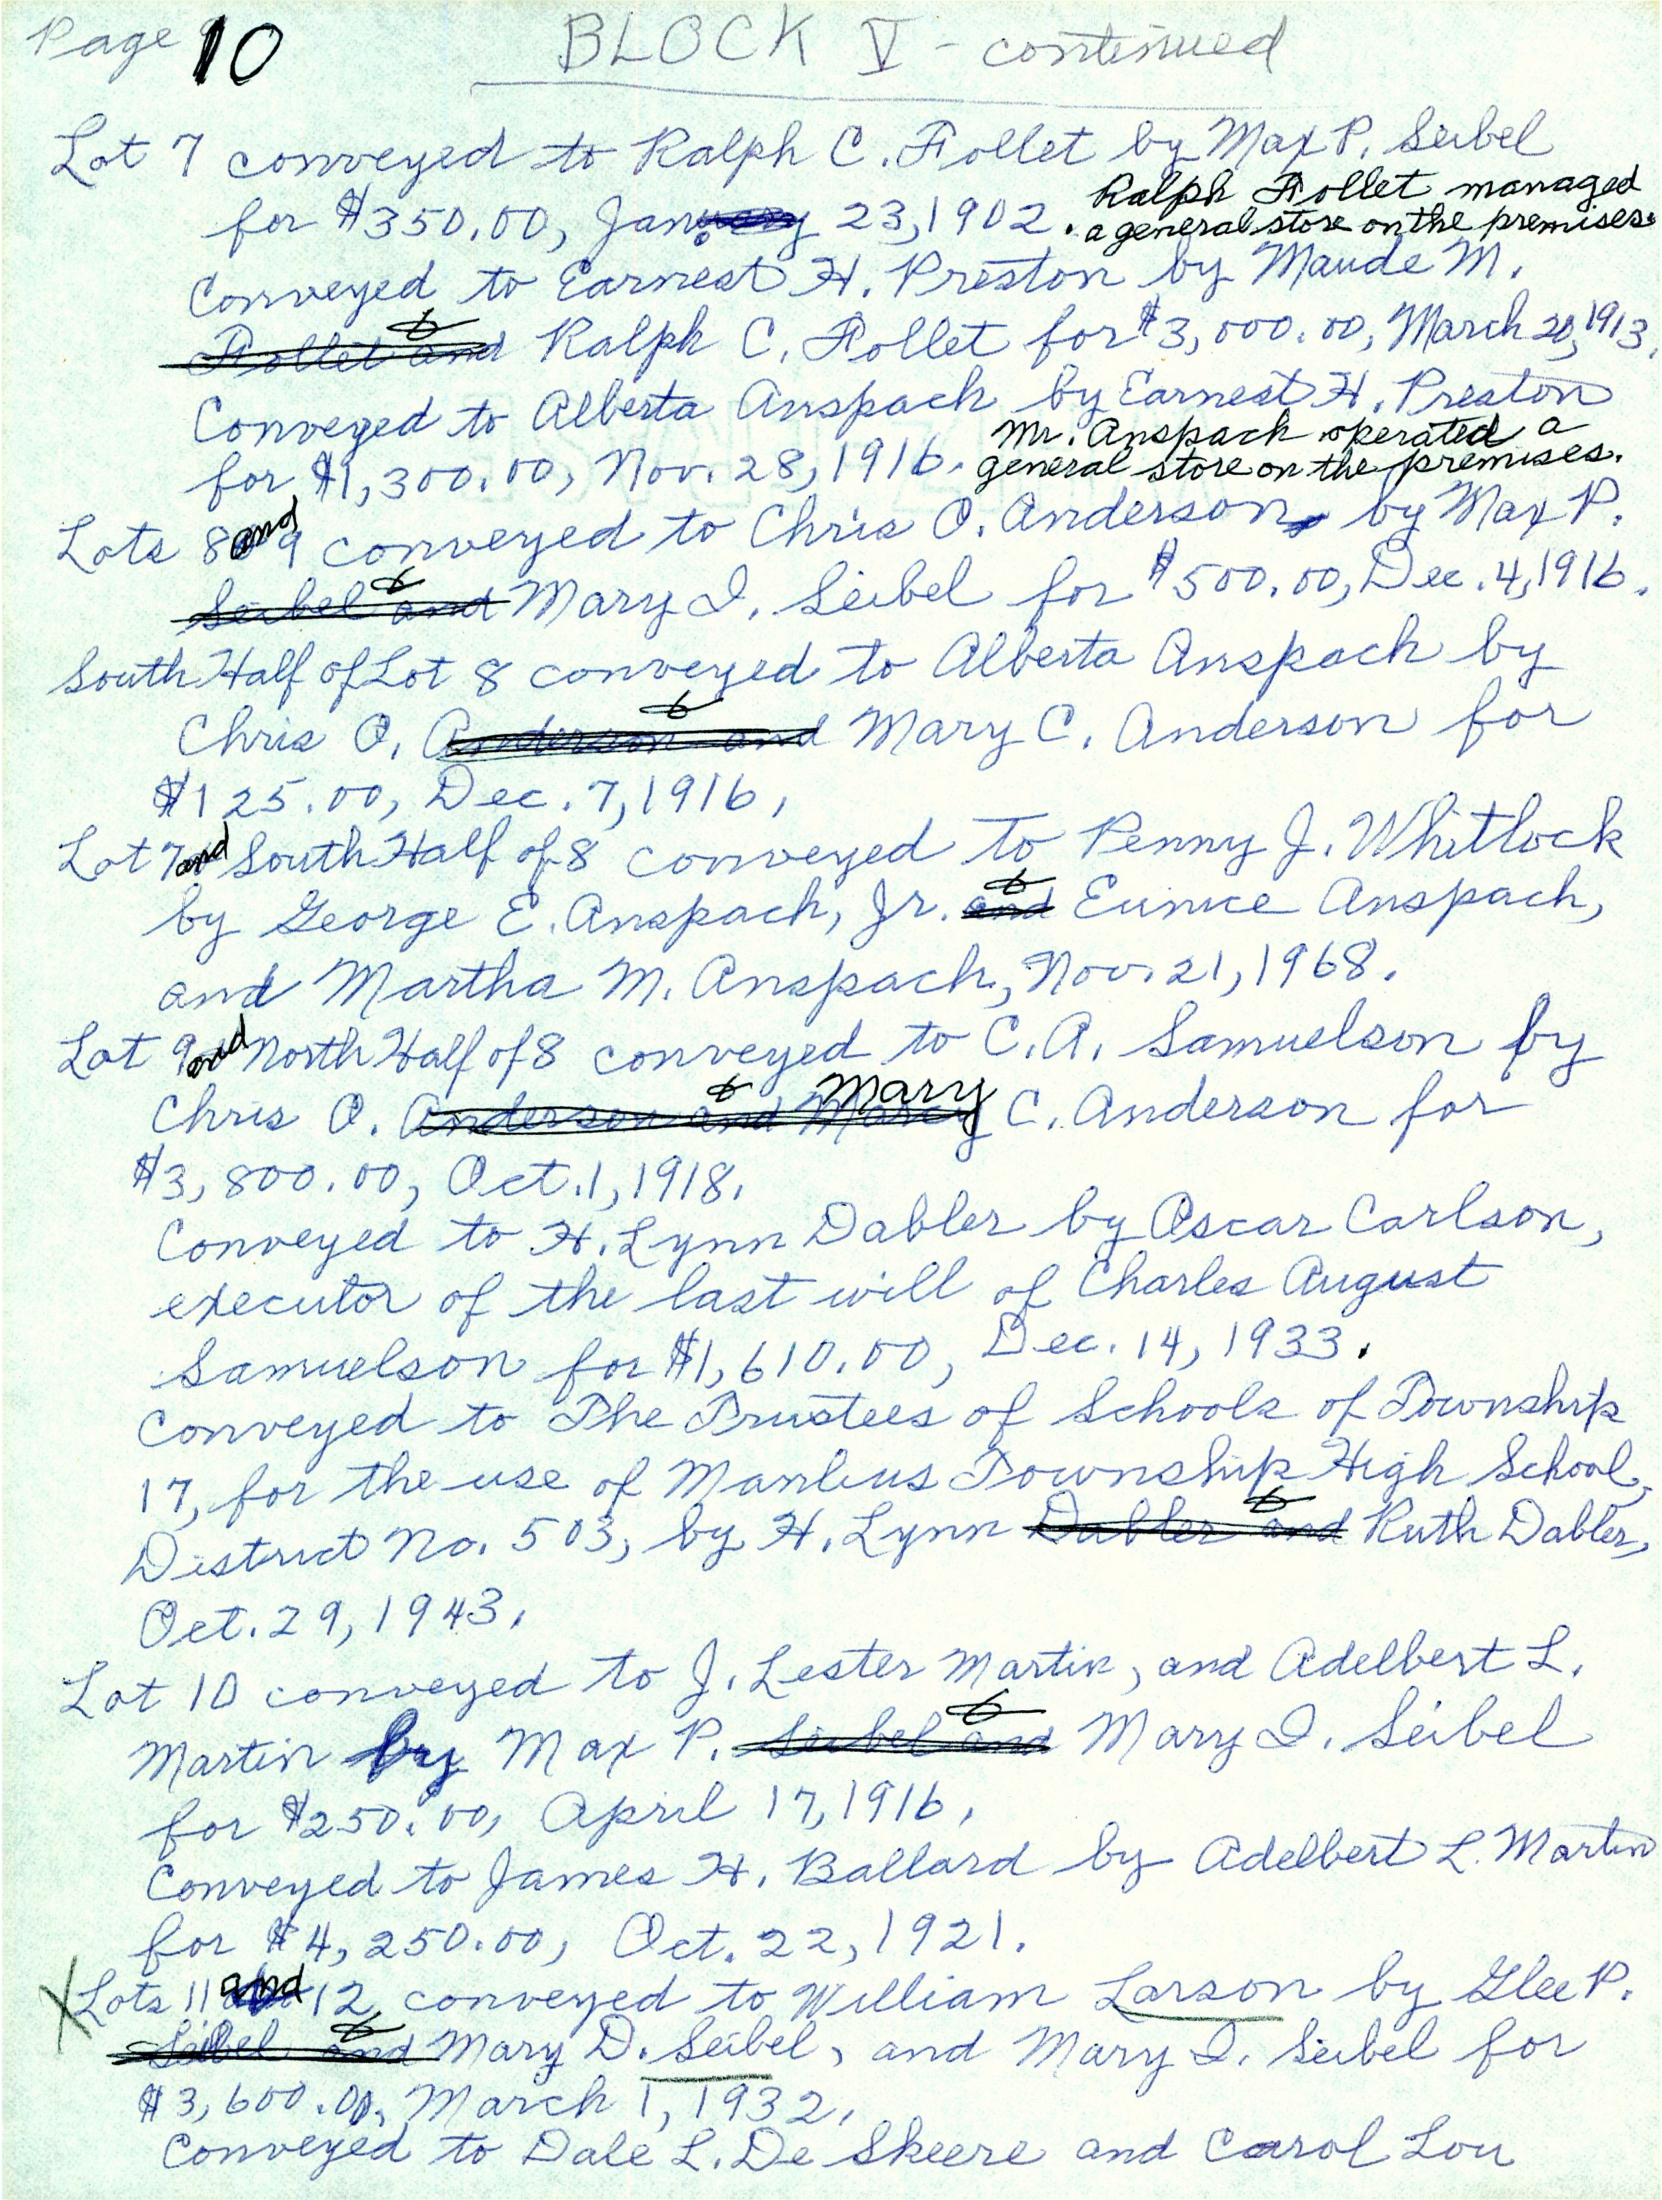 Page 10 BLOCK V - continued
Lot 7 conveyed to Ralph C. Follet by Max P. Seibel
for $350.00, January 23, 1902. Ralph Follet managed
a general store on the premises.
Conveyed to Earnest H. Preston by Maude M.
Follet and & Ralph C. Follet for $3,000.00, March 20, 1913.
Conveyed to Alberta Anspach by Earnest H. Preston
for $1,300.00, Nov. 28, 1916. Mr. Anspach operated a
general store on the premises.
Lots 8 and 9 conveyed to Chris O. Anderson, by Max P.
Seibel and & Mary I. Seibel for $500.00, Dec. 4, 1916.
South Half of Lot 8 conveyed to Alberta Anspach by
Chris O. Anderson and & Mary C. Anderson for
$125.00, Dec. 7, 1916,
Lot 7 and South Half of 8 conveyed to Penny J. Whitlock
by George E. Anspach, Jr. and & Eunice Anspach,
and Martha M. Anspach, Nov. 21, 1968.
Lot 9 and North Half of 8 conveyed to C. A. Samuelson by
Chris O. Anderson and & Mary C. Anderson for
$3,800.00, Oct. 1, 1918.
Conveyed to H. Lynn Dabler by Oscar Carlson,
executor of the last will of Charles August
Samuelson for $1,610.00, Dec. 14, 1933.
Conveyed to The Trustees of Schools of Township
17, for the use of Manlius Township High School,
District No. 503, by H. Lynn Dabler and & Ruth Dabler,
Oct. 29, 1943.
Lot 10 conveyed to J. Lester Martin, and Adelbert L.
Martin by Max P. Seibel and & Mary I. Seibel
for $250.00, April 17, 1916,
Conveyed to James H. Ballard by Adelbert L. Martin
for $4,250.00, Oct. 22, 1921.
X Lots 11 and 12, conveyed to William Larson by Glee P.
Seibel and & Mary D. Seibel, and Mary I. Seibel for
$3,600.00, March 1, 1932,
Conveyed to Dale L. De Skeere and Carol Lou